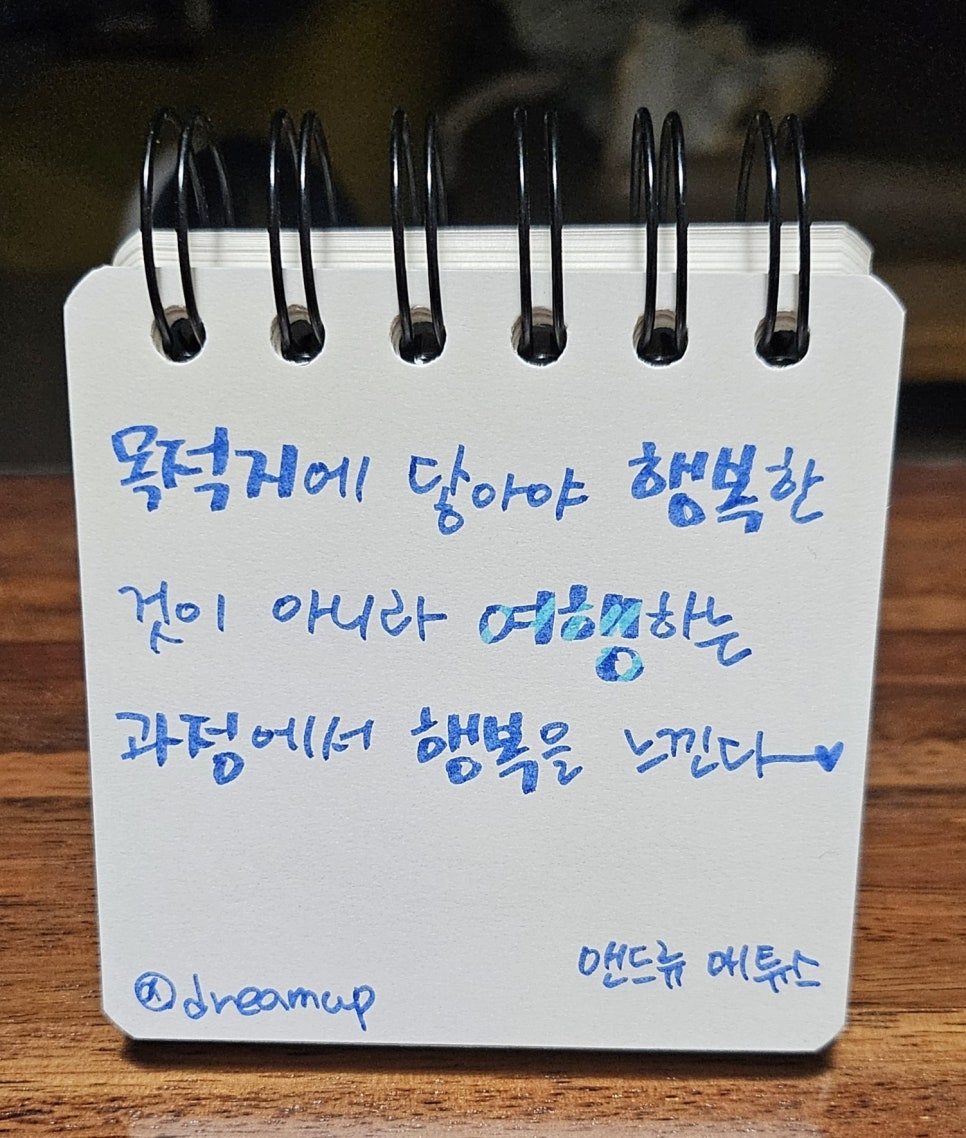 목적지에 닿아야 행복한
것이 아니라 여행하는
과정에서 행복을 느낀다
앤드류 매튜스
@dreamup